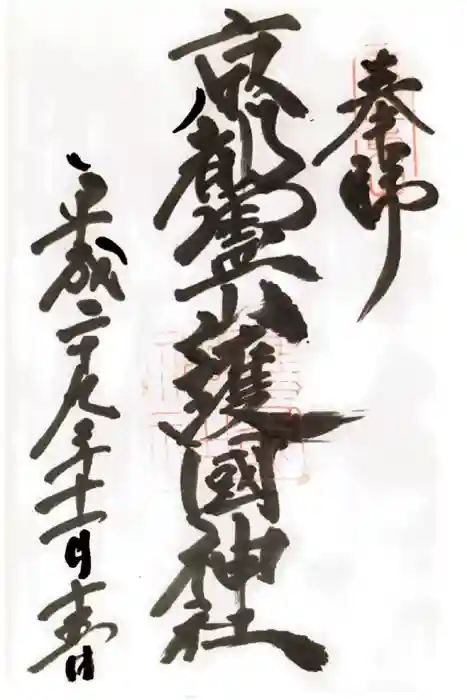 奉拝
京都霊山護國神社
平成二十九年十一月吉日